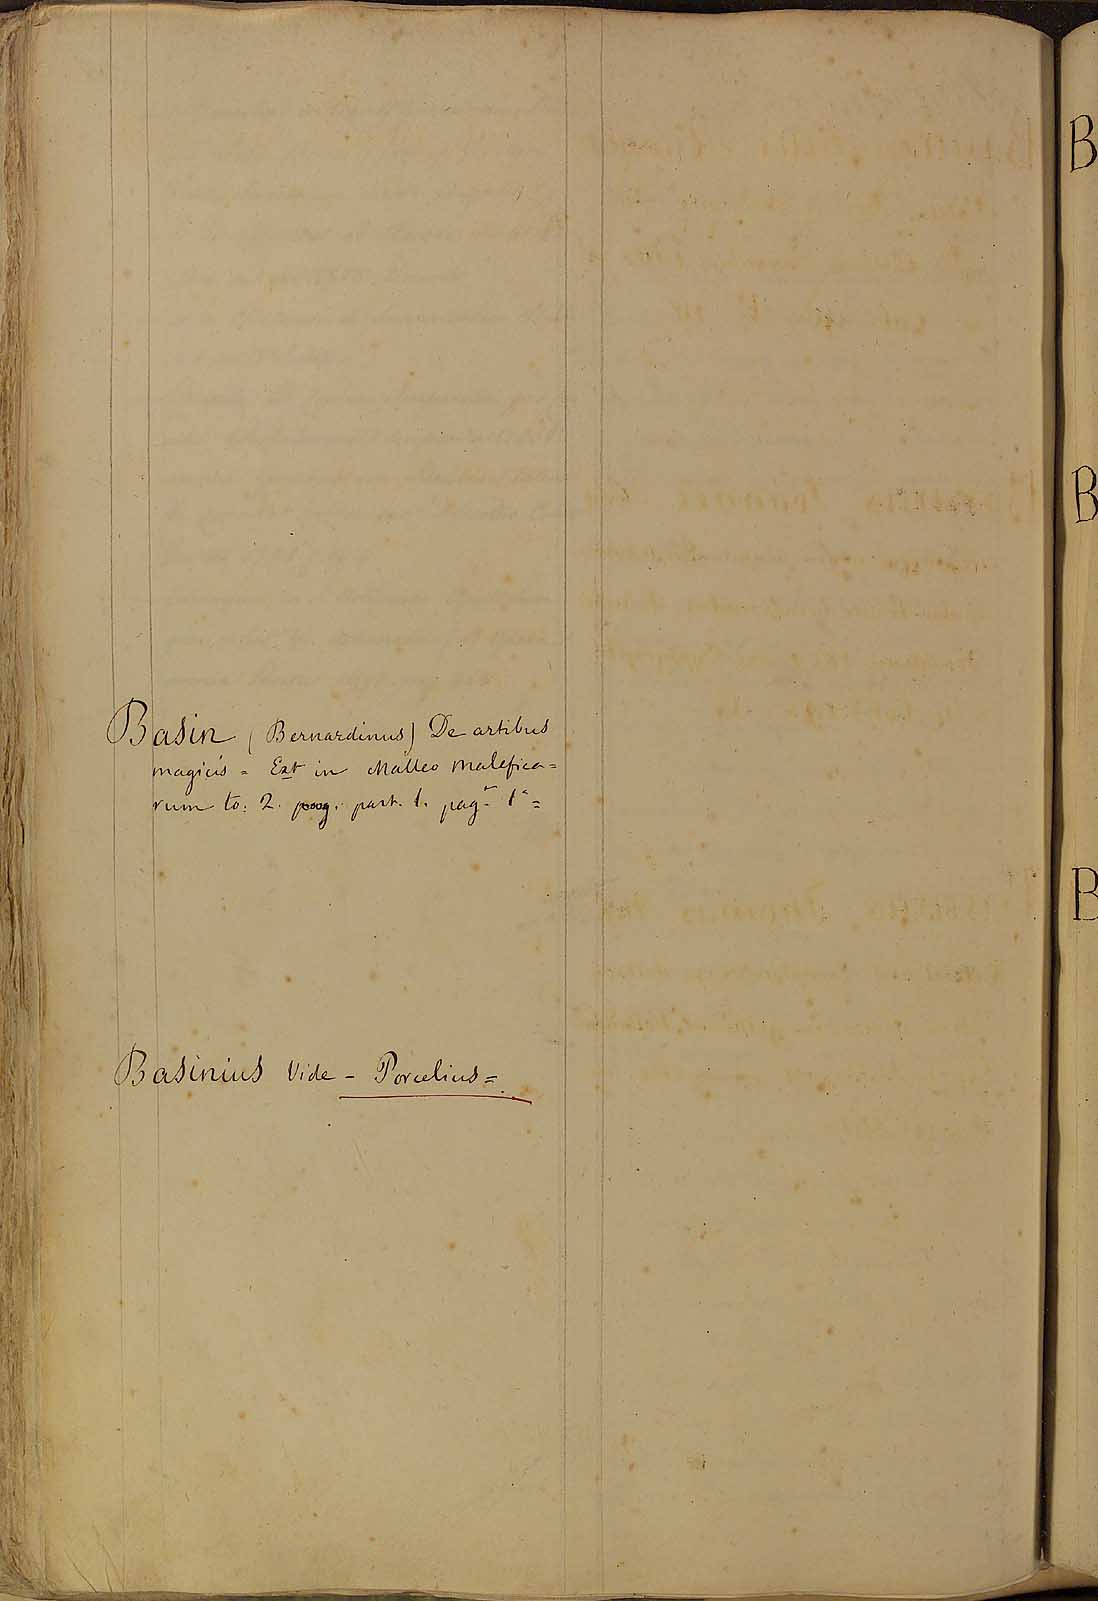 Basin (Bernardinus) De artibus
magicis = Ext in Malleo Malefica=
rum to: 2. part. 1. pagª 1ª =
Basinius Vide - Porcelius =
B
B
B